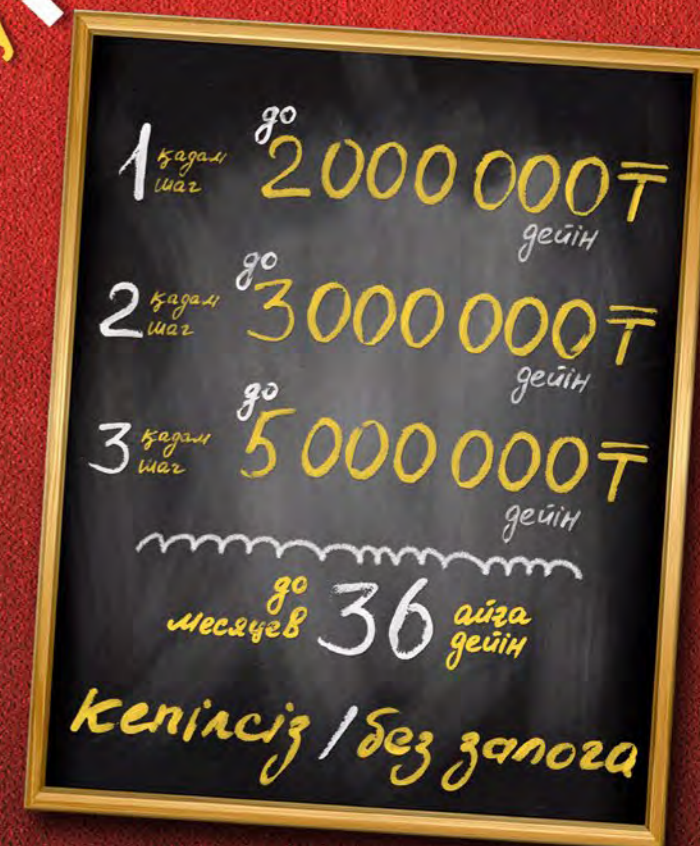 до
1 қадам
шаг
2 000 000 ₸
дейін
до
2 қадам
шаг
3 000 000 ₸
дейін
до
3 қадам
шаг
5 000 000 ₸
дейін
до
месяцев
36
айға
дейін
кепілсіз / без залога